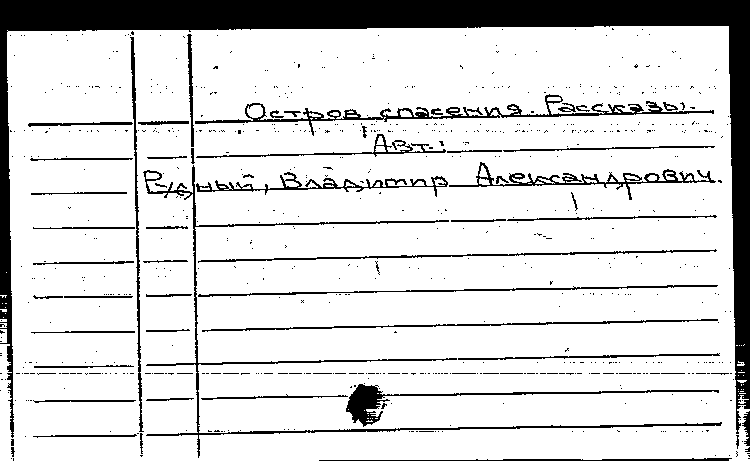 Остров спасения. Рассказы.
Авт.:
Рудный, Владимир Александрович.